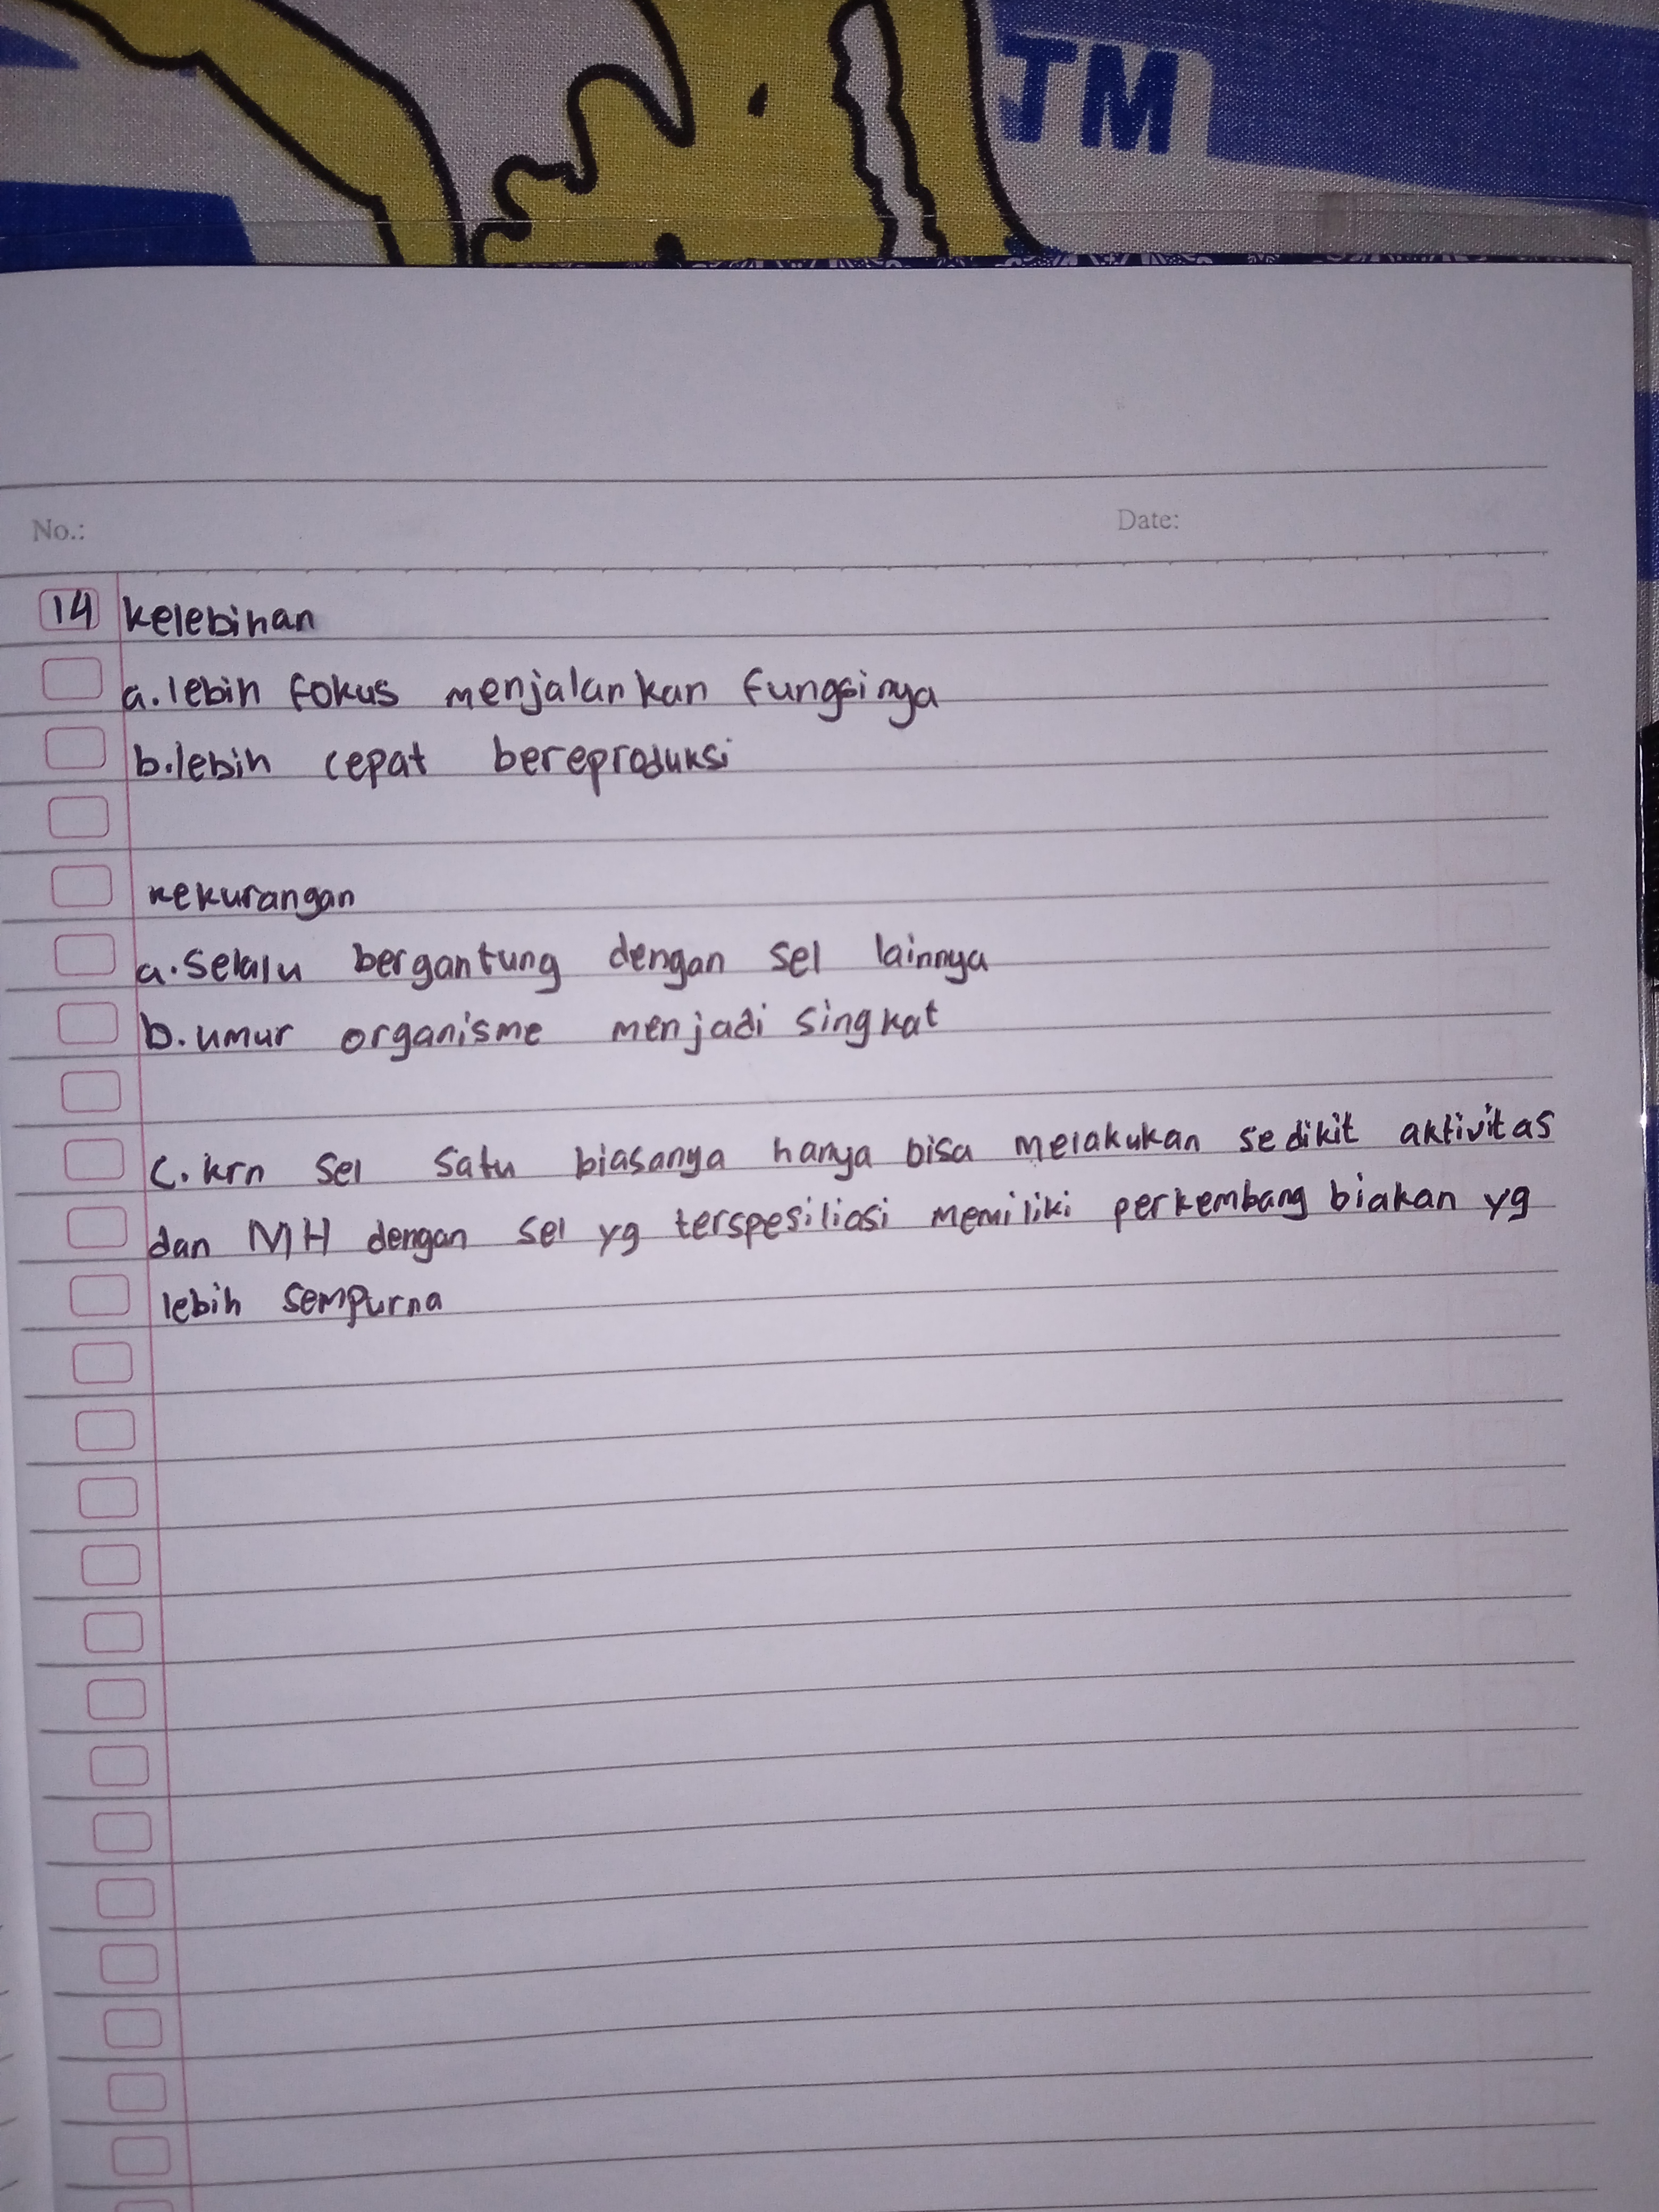 TM
No.:
Date:
14 kelebihan
a. lebih fokus menjalankan fungsinya
b. lebih cepat bereproduksi
kekurangan
a. Selalu bergantung dengan sel lainnya
b. umur organisme menjadi singkat
C. krn sel satu biasanya hanya bisa melakukan sedikit aktivitas
dan MH dengan sel yg terspesiliasi memiliki perkembang biakan yg
lebih sempurna